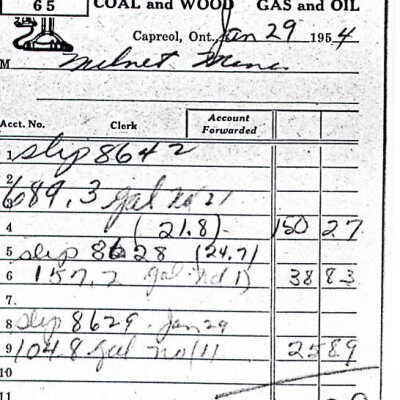 65 COAL and WOOD GAS and OIL
Capreol, Ont. Jan 29 1954
M Milnet Mine
Acct. No. Clerk Account Forwarded
1 slip 8642
2
3 689.3 gal No 21
4 (21.8) 150 27
5 slip 8628 (24.7)
6 157.2 gal No 1) 38 83
7.
8 slip 8629 - Jan 29
9 104.8 gal no (1) 25 89
10
11